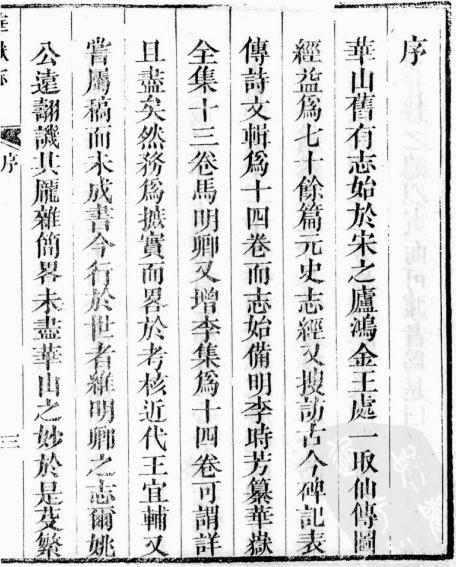 序
華山舊有志始於宋之盧鴻金王處一取仙傳圖
經益爲七十餘篇元史志經又搜訪古今碑記表
傳詩文輯爲十四卷而志始備明李時芳纂華嶽
全集十三卷馬明卿又增李集爲十四卷可謂詳
且盡矣然務爲摭實而畧於考核近代王宜輔又
嘗屬稿而未成書今行於世者雖明卿之志爾姚
公遠翻譏其龎雜簡畧未盡華山之妙於是芟繁
序
三